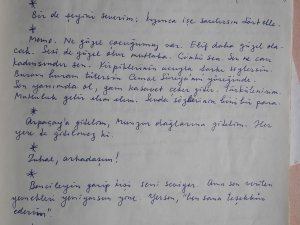 *
Bir de şeyini severim: Aşınca işe sarılırsın dört elle.
*
Memo. Ne güzel çocuğumuz var. Elif daha güzel ola-
cak. Sesi de güzel olur mutlaka. Çünkü sen Ses ne can
kadınısındır sen. Kirpiklerinin ucuyla şarkı söylersin.
Buram buram tütersin Cemal Süreya'nın yüreğinde.
Son yanımda ol, gam kasavet çeker gider. Türkülenirim.
Mutluluk gelir elini. Senda söylerim beni bir para.
*
Arpaçay'a gidelim, Munzur dağlarına gidelim. Her
yere de gidilmez ki.
*
Zuhal, arkadaşım!
*
Bencileyin garip kişi seni seviyor. Ama sen verilen
yemekleri yemiyorsun yine. Yersen, "ben sana teşekkür
ederim".